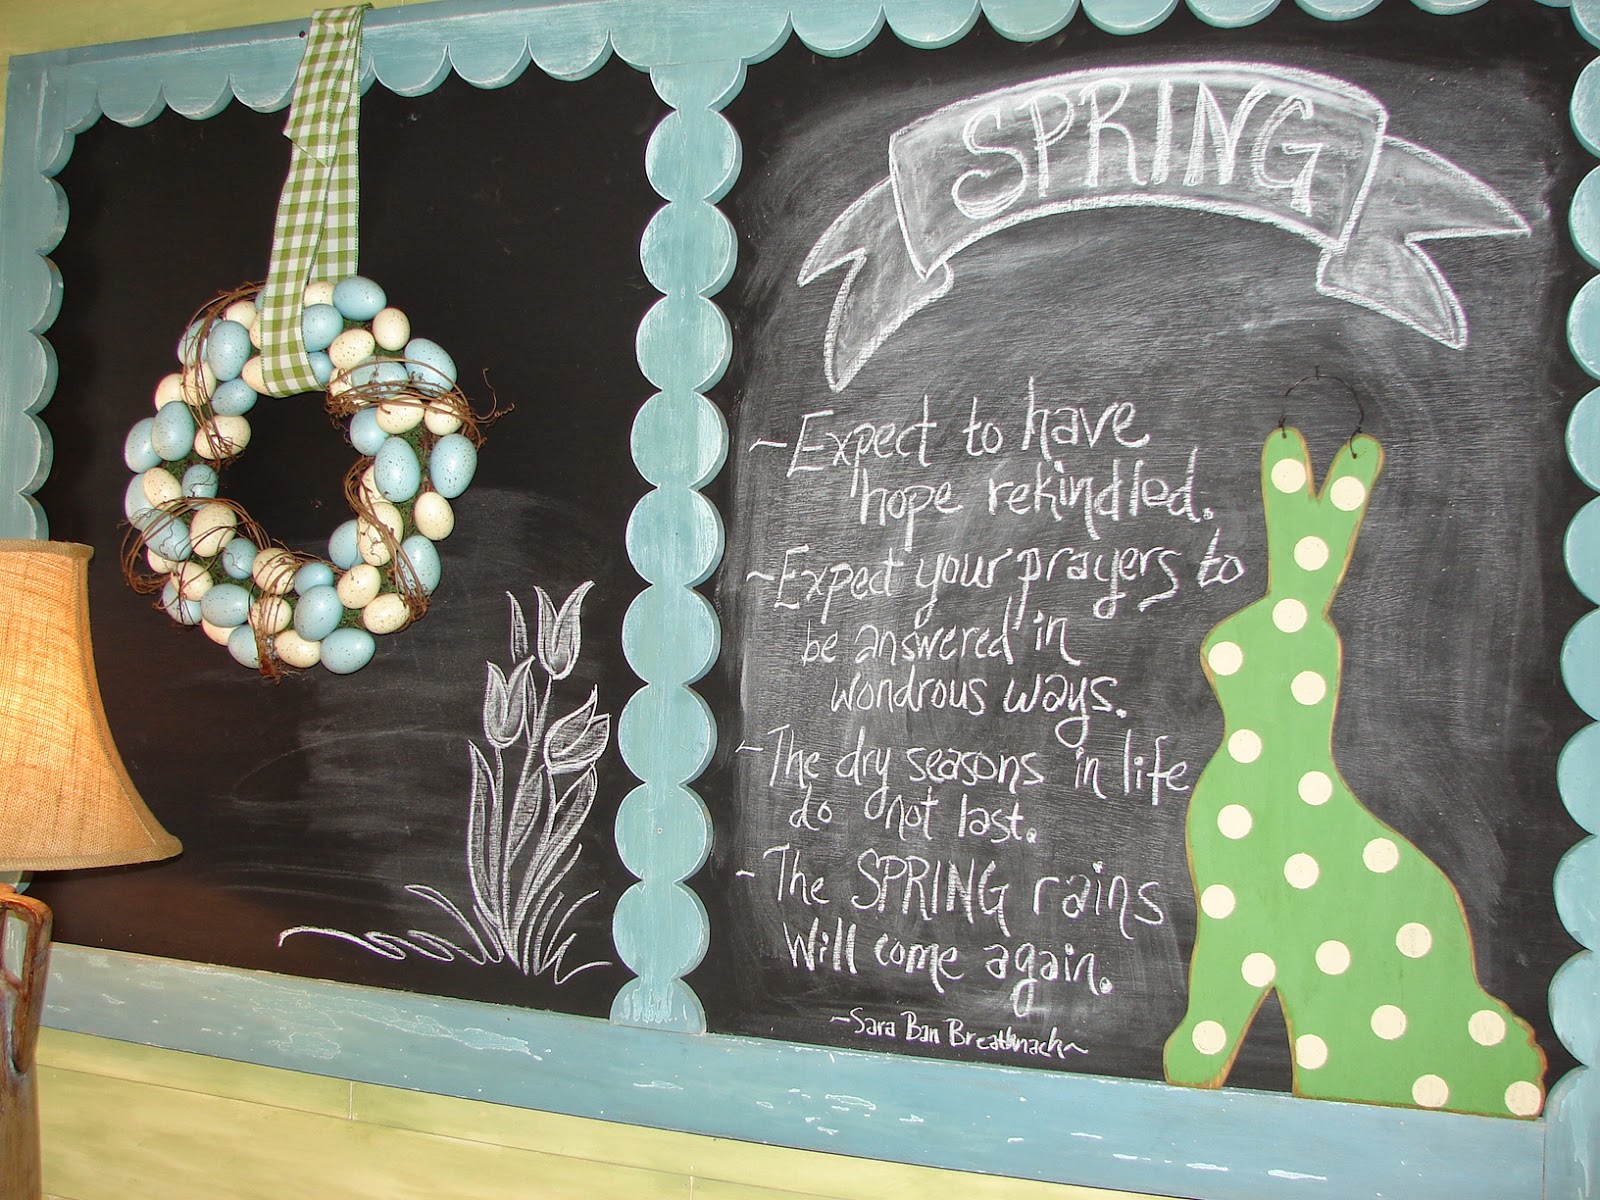 SPRING
~Expect to have
hope rekindled.
~Expect your prayers to
be answered in
wondrous ways.
~The dry seasons in life
do not last.
-The SPRING rains
Will come again.
~Sara Ban Breathnach~